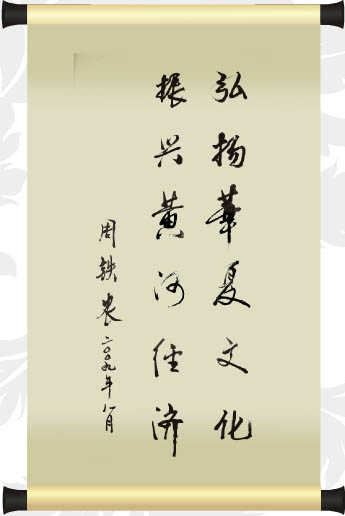 弘扬華夏文化
振兴黄河经济
周铁农
二〇〇九年八月